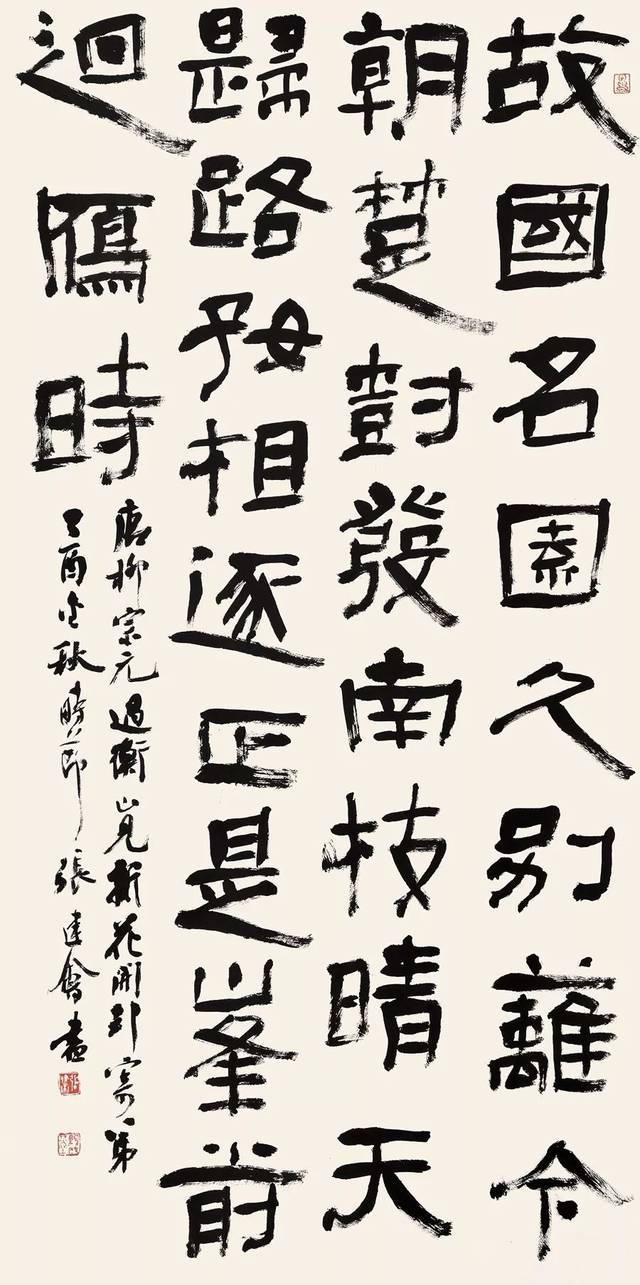 故國名園久別離今
朝楚尌發南枝晴天
歸路好相逐正是峯前
迴鴈時
唐柳宗元過衡山見新花開却寄弟
丁酉金秋時節張建會書